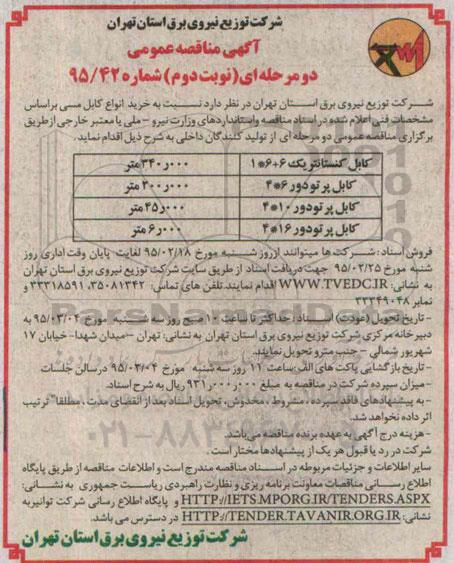 شرکت توزیع نیروی برق استان تهران
آگهی مناقصه عمومی
دو مرحله ای (نوبت دوم) شماره ۹۵/۴۲
شرکت توزیع نیروی برق استان تهران در نظر دارد نسبت به خرید انواع کابل مسی براساس
مشخصات فنی اعلام شده در اسناد مناقصه و استانداردهای وزارت نیرو - ملی یا معتبر خارجی از طریق
برگزاری مناقصه عمومی دو مرحله ای از تولید کنندگان داخلی به شرح ذیل اقدام نماید.
کابل کنسانتریک ۶+۶*۱ ۳۴۰٫۰۰۰ متر
کابل پرتودور ۶*۴ ۲۰۰٫۰۰۰ متر
کابل پرتودور ۱۰*۴ ۴۵٫۰۰۰ متر
کابل پرتودور ۱۶*۴ ۶٫۰۰۰ متر
فروش اسناد: شرکت ها میتوانند از روز شنبه مورخ ۹۵/۰۲/۱۸ لغایت پایان وقت اداری روز
شنبه مورخ ۹۵/۰۲/۲۵ جهت دریافت اسناد از طریق سایت شرکت توزیع نیروی برق استان تهران
به نشانی: WWW.TVEDC.IR اقدام نمایند. تلفن های تماس: ۳۵۰۸۱۳۴۲، ۳۳۳۱۸۵۹۱ و
نمابر ۳۳۳۴۹۰۴۸
- تاریخ تحویل (عودت) اسناد: حداکثر تا ساعت ۱۰ صبح روز سه شنبه مورخ ۹۵/۰۳/۰۴ به
دبیرخانه مرکزی شرکت توزیع نیروی برق استان تهران به نشانی: تهران - میدان شهدا - خیابان ۱۷
شهریور شمالی - جنب مترو تحویل نمایند.
- تاریخ بازگشایی پاکت های الف: ساعت ۱۱ روز سه شنبه مورخ ۹۵/۰۳/۰۴ در سالن جلسات
- میزان سپرده شرکت در مناقصه به مبلغ ۹۳۱٫۰۰۰٫۰۰۰ ریال به شرح اسناد.
- به پیشنهادهای فاقد سپرده، مشروط، مخدوش، تحویل اسناد بعد از انقضای مدت، مطلقا" ترتیب
اثر داده نخواهد شد.
- هزینه درج آگهی به عهده برنده مناقصه می‌باشد.
شرکت در رد یا قبول هر یک از پیشنهادها مختار است.
سایر اطلاعات و جزئیات مربوطه در اسناد مناقصه مندرج است و اطلاعات مناقصه از طریق پایگاه
اطلاع رسانی مناقصات معاونت برنامه ریزی و نظارت راهبردی ریاست جمهوری به نشانی:
HTTP://IETS.MPORG.IR/TENDERS.ASPX و پایگاه اطلاع رسانی شرکت توانیر به
نشانی: HTTP://TENDER.TAVANIR.ORG.IR در دسترس می باشد.
شرکت توزیع نیروی برق استان تهران